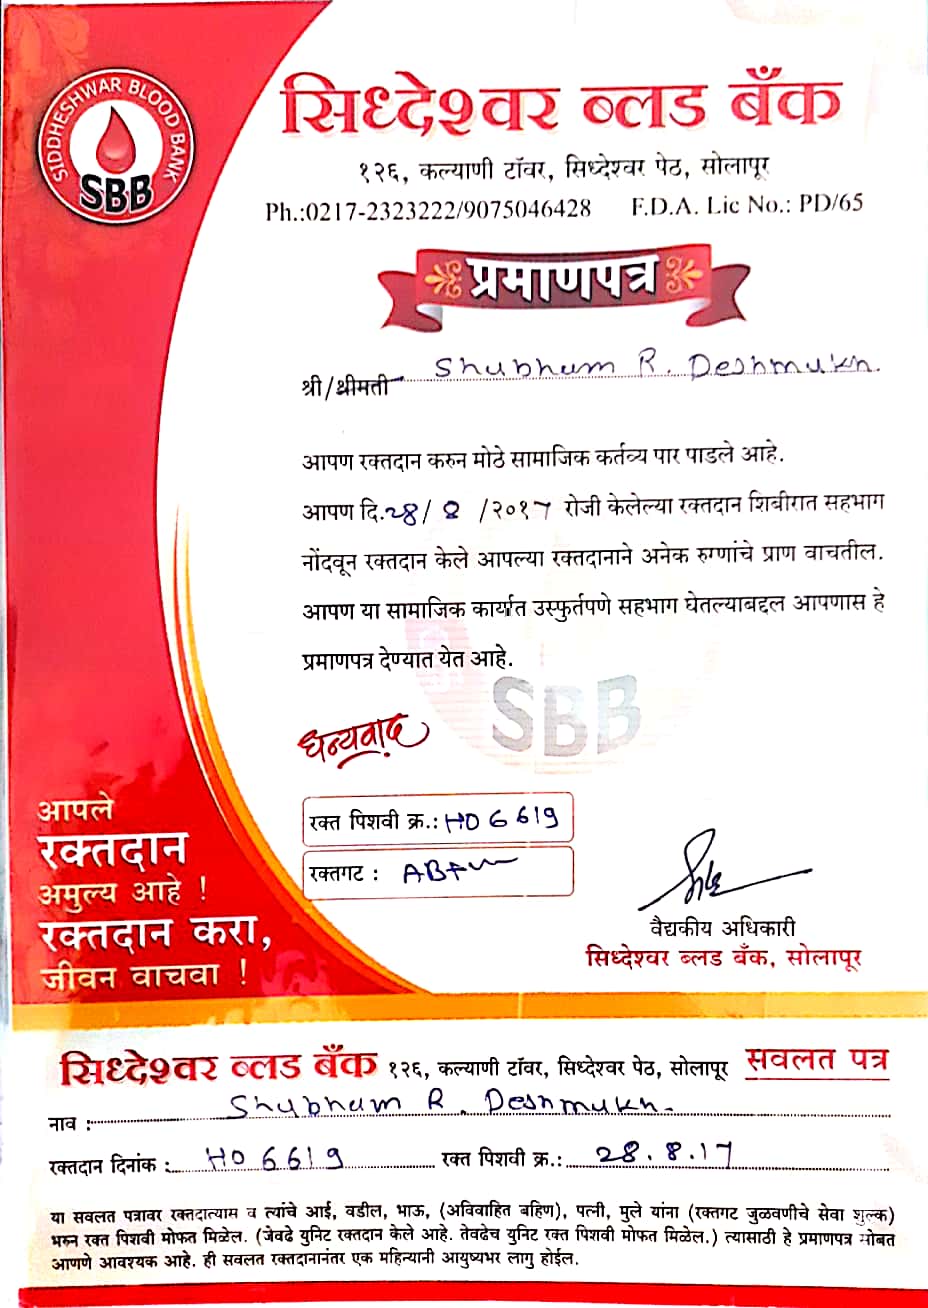 SIDDHESHWAR BLOOD BANK
SBB
सिध्देश्वर ब्लड बँक
१२६, कल्याणी टॉवर, सिध्देश्वर पेठ, सोलापूर
Ph.:0217-2323222/9075046428 F.D.A. Lic No.: PD/65
प्रमाणपत्र
श्री/श्रीमती Shubham R. Deshmukh.
आपण रक्तदान करुन मोठे सामाजिक कर्तव्य पार पाडले आहे.
आपण दि.28/ 8 /२०१७ रोजी केलेल्या रक्तदान शिबीरात सहभाग
नोंदवून रक्तदान केले आपल्या रक्तदानाने अनेक रुग्णांचे प्राण वाचतील.
आपण या सामाजिक कार्यात उस्फुर्तपणे सहभाग घेतल्याबद्दल आपणास हे
प्रमाणपत्र देण्यात येत आहे.
SBB
धन्यवाद
रक्त पिशवी क्र.: HO 6619
रक्तगट : AB+ve
वैद्यकीय अधिकारी
सिध्देश्वर ब्लड बँक, सोलापूर
आपले
रक्तदान
अमुल्य आहे !
रक्तदान करा,
जीवन वाचवा !
सिध्देश्वर ब्लड बँक १२६, कल्याणी टॉवर, सिध्देश्वर पेठ, सोलापूर सवलत पत्र
नाव : Shubham R. Deshmukh.
रक्तदान दिनांक : HO 6619 रक्त पिशवी क्र.: 28.8.17
या सवलत पत्रावर रक्तदात्यास व त्यांचे आई, वडील, भाऊ, (अविवाहित बहिण), पत्नी, मुले यांना (रक्तगट जुळवणीचे सेवा शुल्क)
भरुन रक्त पिशवी मोफत मिळेल. (जेवढे युनिट रक्तदान केले आहे. तेवढेच युनिट रक्त पिशवी मोफत मिळेल.) त्यासाठी हे प्रमाणपत्र सोबत
आणणे आवश्यक आहे. ही सवलत रक्तदानानंतर एक महिन्यानी आयुष्यभर लागु होईल.